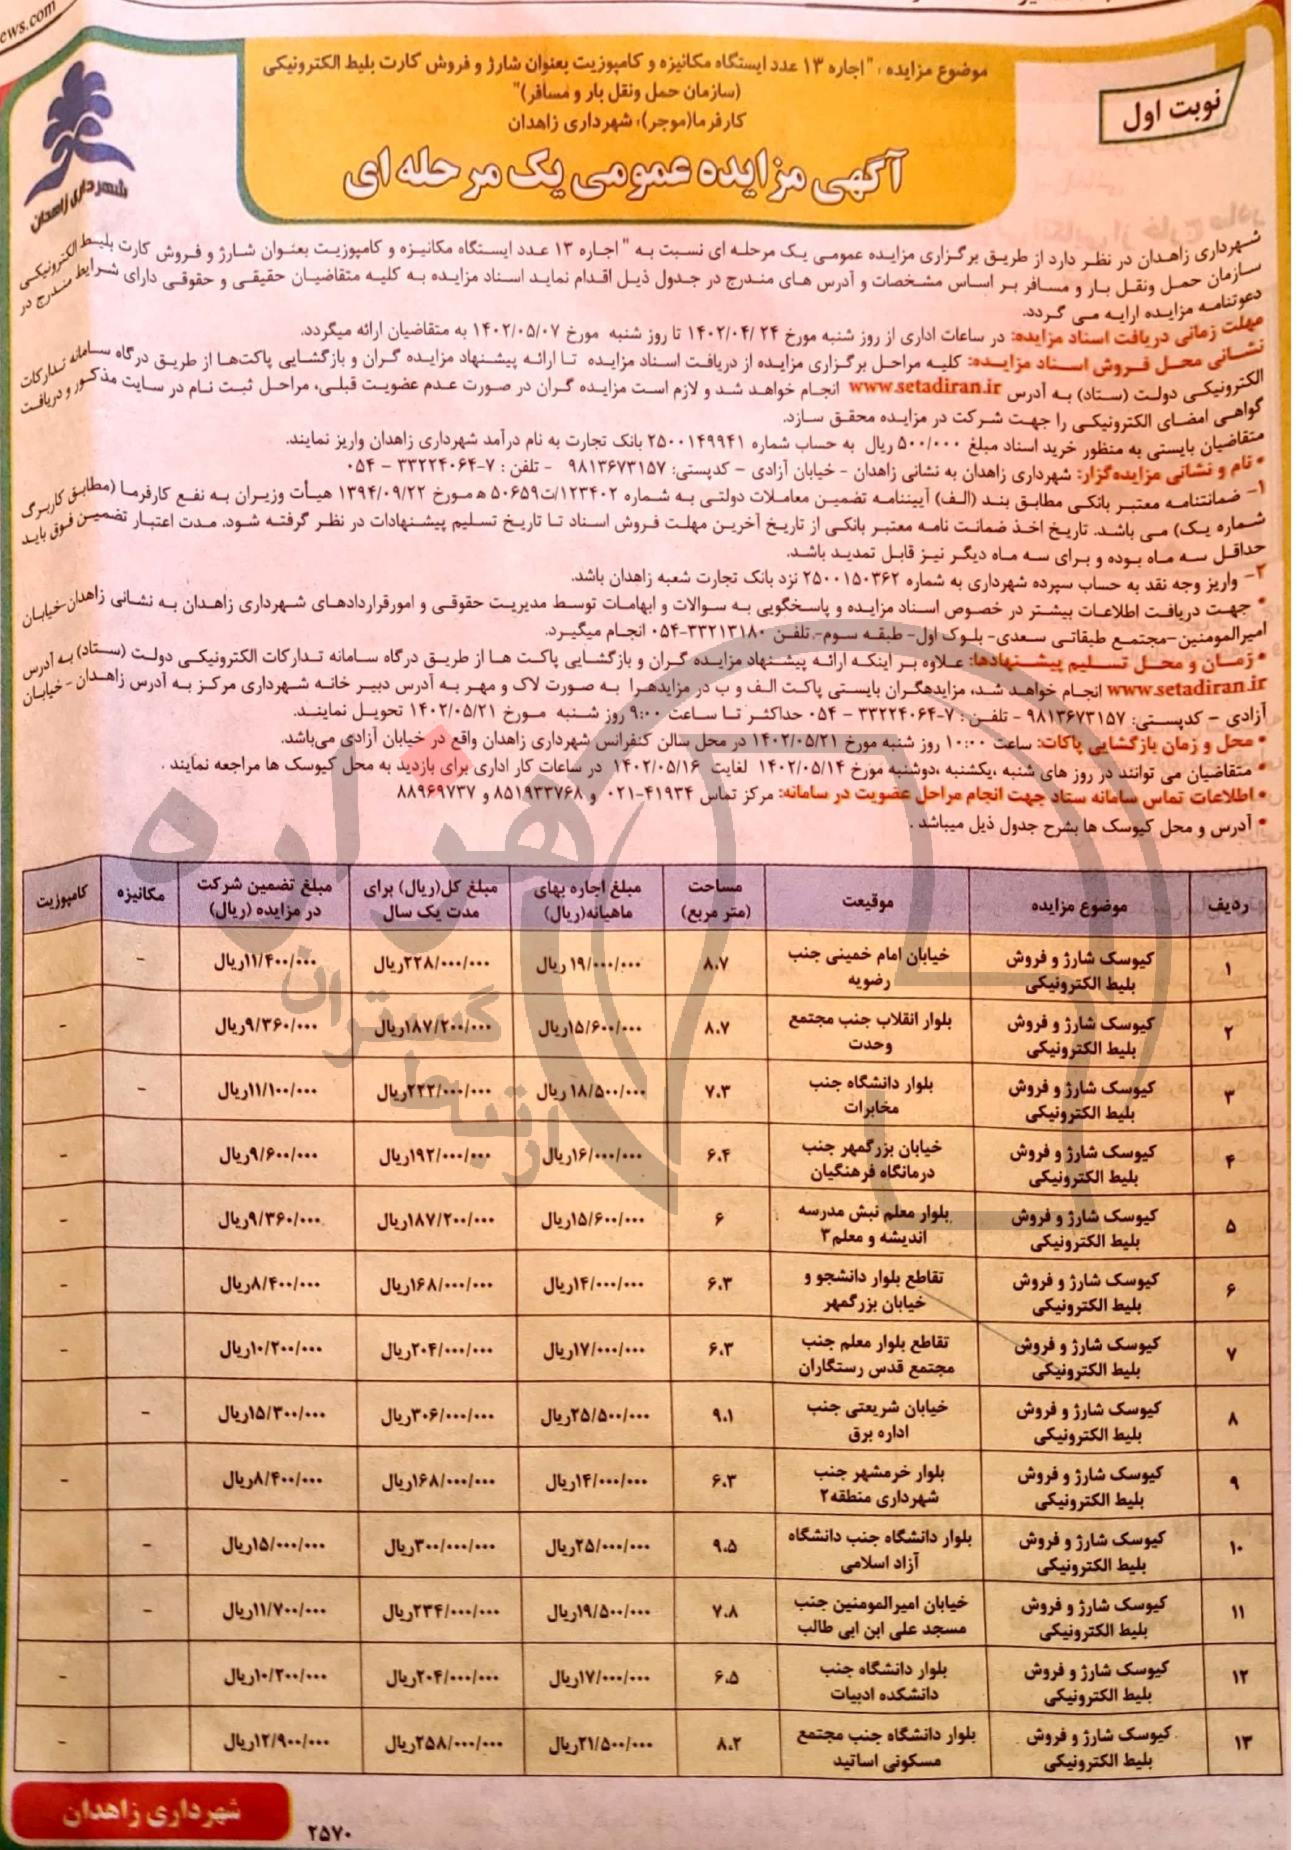 ews.com
شهرداری زاهدان
نوبت اول
موضوع مزایده : "اجاره ۱۳ عدد ایستگاه مکانیزه و کامپوزیت بعنوان شارژ و فروش کارت بلیط الکترونیکی
(سازمان حمل ونقل بار و مسافر)"
کارفرما(موجر): شهرداری زاهدان
آگهی مزایده عمومی یک مرحله ای
شهرداری زاهدان در نظر دارد از طریق برگزاری مزایده عمومی یک مرحله ای نسبت به " اجاره ۱۳ عدد ایستگاه مکانیزه و کامپوزیت بعنوان شارژ و فروش کارت بلیط الکترونیکی
سازمان حمل ونقل بار و مسافر بر اساس مشخصات و آدرس های مندرج در جدول ذیل اقدام نماید اسناد مزایده به کلیه متقاضیان حقیقی و حقوقی دارای شرایط مندرج در
دعوتنامه مزایده ارایه می گردد.
مهلت زمانی دریافت اسناد مزایده: در ساعات اداری از روز شنبه مورخ ۲۴ /۱۴۰۲/۰۴ تا روز شنبه مورخ ۱۴۰۲/۰۵/۰۷ به متقاضیان ارائه میگردد.
نشانی محل فروش اسناد مزایده: کلیه مراحل برگزاری مزایده از دریافت اسناد مزایده تا ارائه پیشنهاد مزایده گران و بازگشایی پاکت‌ها از طریق درگاه سامانه تدارکات
الکترونیکی دولت (ستاد) به آدرس www.setadiran.ir انجام خواهد شد و لازم است مزایده گران در صورت عدم عضویت قبلی، مراحل ثبت نام در سایت مذکور و دریافت
گواهی امضای الکترونیکی را جهت شرکت در مزایده محقق سازد.
متقاضیان بایستی به منظور خرید اسناد مبلغ ۵۰۰/۰۰۰ ریال به حساب شماره ۲۵۰۰۱۴۹۹۴۱ بانک تجارت به نام درآمد شهرداری زاهدان واریز نمایند.
• نام و نشانی مزایده‌گزار: شهرداری زاهدان به نشانی زاهدان - خیابان آزادی - کدپستی: ۹۸۱۳۶۷۳۱۵۷ - تلفن : ۷-۳۳۲۲۴۰۶۴ - ۰۵۴
۱- ضمانتنامه معتبر بانکی مطابق بند (الف) آییننامه تضمین معاملات دولتی به شماره ۱۲۳۴۰۲/ت۵۰۶۵۹ ه مورخ ۱۳۹۴/۰۹/۲۲ هیأت وزیران به نفع کارفرما (مطابق کاربرگ
شماره یک) می باشد. تاریخ اخذ ضمانت نامه معتبر بانکی از تاریخ آخرین مهلت فروش اسناد تا تاریخ تسلیم پیشنهادات در نظر گرفته شود. مدت اعتبار تضمین فوق باید
حداقل سه ماه بوده و برای سه ماه دیگر نیز قابل تمدید باشد.
۲- واریز وجه نقد به حساب سپرده شهرداری به شماره ۲۵۰۰۱۵۰۳۶۲ نزد بانک تجارت شعبه زاهدان باشد.
• جهت دریافت اطلاعات بیشتر در خصوص اسناد مزایده و پاسخگویی به سوالات و ابهامات توسط مدیریت حقوقی و امورقراردادهای شهرداری زاهدان به نشانی زاهدان-خیابان
امیرالمومنین-مجتمع طبقاتی سعدی- بلوک اول- طبقه سوم- تلفن ۳۳۲۱۳۱۸۰-۰۵۴ انجام میگیرد.
• زمان و محل تسلیم پیشنهادها: علاوه بر اینکه ارائه پیشنهاد مزایده گران و بازگشایی پاکت ها از طریق درگاه سامانه تدارکات الکترونیکی دولت (ستاد) به آدرس
www.setadiran.ir انجام خواهد شد، مزایدهگران بایستی پاکت الف و ب در مزایدهرا به صورت لاک و مهر به آدرس دبیر خانه شهرداری مرکز به آدرس زاهدان -خیابان
آزادی - کدپستی: ۹۸۱۳۶۷۳۱۵۷ - تلفن : ۷-۳۳۲۲۴۰۶۴ - ۰۵۴ حداکثر تا ساعت ۹:۰۰ روز شنبه مورخ ۱۴۰۲/۰۵/۲۱ تحویل نمایند.
• محل و زمان بازگشایی پاکات: ساعت ۱۰:۰۰ روز شنبه مورخ ۱۴۰۲/۰۵/۲۱ در محل سالن کنفرانس شهرداری زاهدان واقع در خیابان آزادی می‌باشد.
• متقاضیان می توانند در روز های شنبه ،یکشنبه ،دوشنبه مورخ ۱۴۰۲/۰۵/۱۴ لغایت ۱۴۰۲/۰۵/۱۶ در ساعات کار اداری برای بازدید به محل کیوسک ها مراجعه نمایند .
• اطلاعات تماس سامانه ستاد جهت انجام مراحل عضویت در سامانه: مرکز تماس ۴۱۹۳۴-۰۲۱ و ۸۵۱۹۳۳۷۶۸ و ۸۸۹۶۹۷۳۷
• آدرس و محل کیوسک ها بشرح جدول ذیل میباشد .
ردیف موضوع مزایده موقیعت مساحت (متر مربع) مبلغ اجاره بهای ماهیانه(ریال) مبلغ کل(ریال) برای مدت یک سال مبلغ تضمین شرکت در مزایده (ریال) مکانیزه کامپوزیت
۱ کیوسک شارژ و فروش بلیط الکترونیکی خیابان امام خمینی جنب رضویه ۸.۷ ۱۹/۰۰۰/۰۰۰ ریال ۲۲۸/۰۰۰/۰۰۰ریال ۱۱/۴۰۰/۰۰۰ریال -
۲ کیوسک شارژ و فروش بلیط الکترونیکی بلوار انقلاب جنب مجتمع وحدت ۸.۷ ۱۵/۶۰۰/۰۰۰ریال ۱۸۷/۲۰۰/۰۰۰ریال ۹/۳۶۰/۰۰۰ریال -
۳ کیوسک شارژ و فروش بلیط الکترونیکی بلوار دانشگاه جنب مخابرات ۷.۳ ۱۸/۵۰۰/۰۰۰ ریال ۲۲۲/۰۰۰/۰۰۰ریال ۱۱/۱۰۰/۰۰۰ریال -
۴ کیوسک شارژ و فروش بلیط الکترونیکی خیابان بزرگمهر جنب درمانگاه فرهنگیان ۶.۴ ۱۶/۰۰۰/۰۰۰ریال ۱۹۲/۰۰۰/۰۰۰ریال ۹/۶۰۰/۰۰۰ریال -
۵ کیوسک شارژ و فروش بلیط الکترونیکی بلوار معلم نبش مدرسه اندیشه و معلم۳ ۶ ۱۵/۶۰۰/۰۰۰ریال ۱۸۷/۲۰۰/۰۰۰ریال ۹/۳۶۰/۰۰۰ریال -
۶ کیوسک شارژ و فروش بلیط الکترونیکی تقاطع بلوار دانشجو و خیابان بزرگمهر ۶.۳ ۱۴/۰۰۰/۰۰۰ریال ۱۶۸/۰۰۰/۰۰۰ریال ۸/۴۰۰/۰۰۰ریال -
۷ کیوسک شارژ و فروش بلیط الکترونیکی تقاطع بلوار معلم جنب مجتمع قدس رستگاران ۶.۳ ۱۷/۰۰۰/۰۰۰ریال ۲۰۴/۰۰۰/۰۰۰ریال ۱۰/۲۰۰/۰۰۰ریال -
۸ کیوسک شارژ و فروش بلیط الکترونیکی خیابان شریعتی جنب اداره برق ۹.۱ ۲۵/۵۰۰/۰۰۰ریال ۳۰۶/۰۰۰/۰۰۰ریال ۱۵/۳۰۰/۰۰۰ریال -
۹ کیوسک شارژ و فروش بلیط الکترونیکی بلوار خرمشهر جنب شهرداری منطقه۲ ۶.۳ ۱۴/۰۰۰/۰۰۰ریال ۱۶۸/۰۰۰/۰۰۰ریال ۸/۴۰۰/۰۰۰ریال -
۱۰ کیوسک شارژ و فروش بلیط الکترونیکی بلوار دانشگاه جنب دانشگاه آزاد اسلامی ۹.۵ ۲۵/۰۰۰/۰۰۰ریال ۳۰۰/۰۰۰/۰۰۰ریال ۱۵/۰۰۰/۰۰۰ریال -
۱۱ کیوسک شارژ و فروش بلیط الکترونیکی خیابان امیرالمومنین جنب مسجد علی ابن ابی طالب ۷.۸ ۱۹/۵۰۰/۰۰۰ریال ۲۳۴/۰۰۰/۰۰۰ریال ۱۱/۷۰۰/۰۰۰ریال -
۱۲ کیوسک شارژ و فروش بلیط الکترونیکی بلوار دانشگاه جنب دانشکده ادبیات ۶.۵ ۱۷/۰۰۰/۰۰۰ریال ۲۰۴/۰۰۰/۰۰۰ریال ۱۰/۲۰۰/۰۰۰ریال -
۱۳ کیوسک شارژ و فروش بلیط الکترونیکی بلوار دانشگاه جنب مجتمع مسکونی اساتید ۸.۲ ۲۱/۵۰۰/۰۰۰ریال ۲۵۸/۰۰۰/۰۰۰ریال ۱۲/۹۰۰/۰۰۰ریال -
هزاره
ارتباط گستران
شهرداری زاهدان
۲۵۷۰